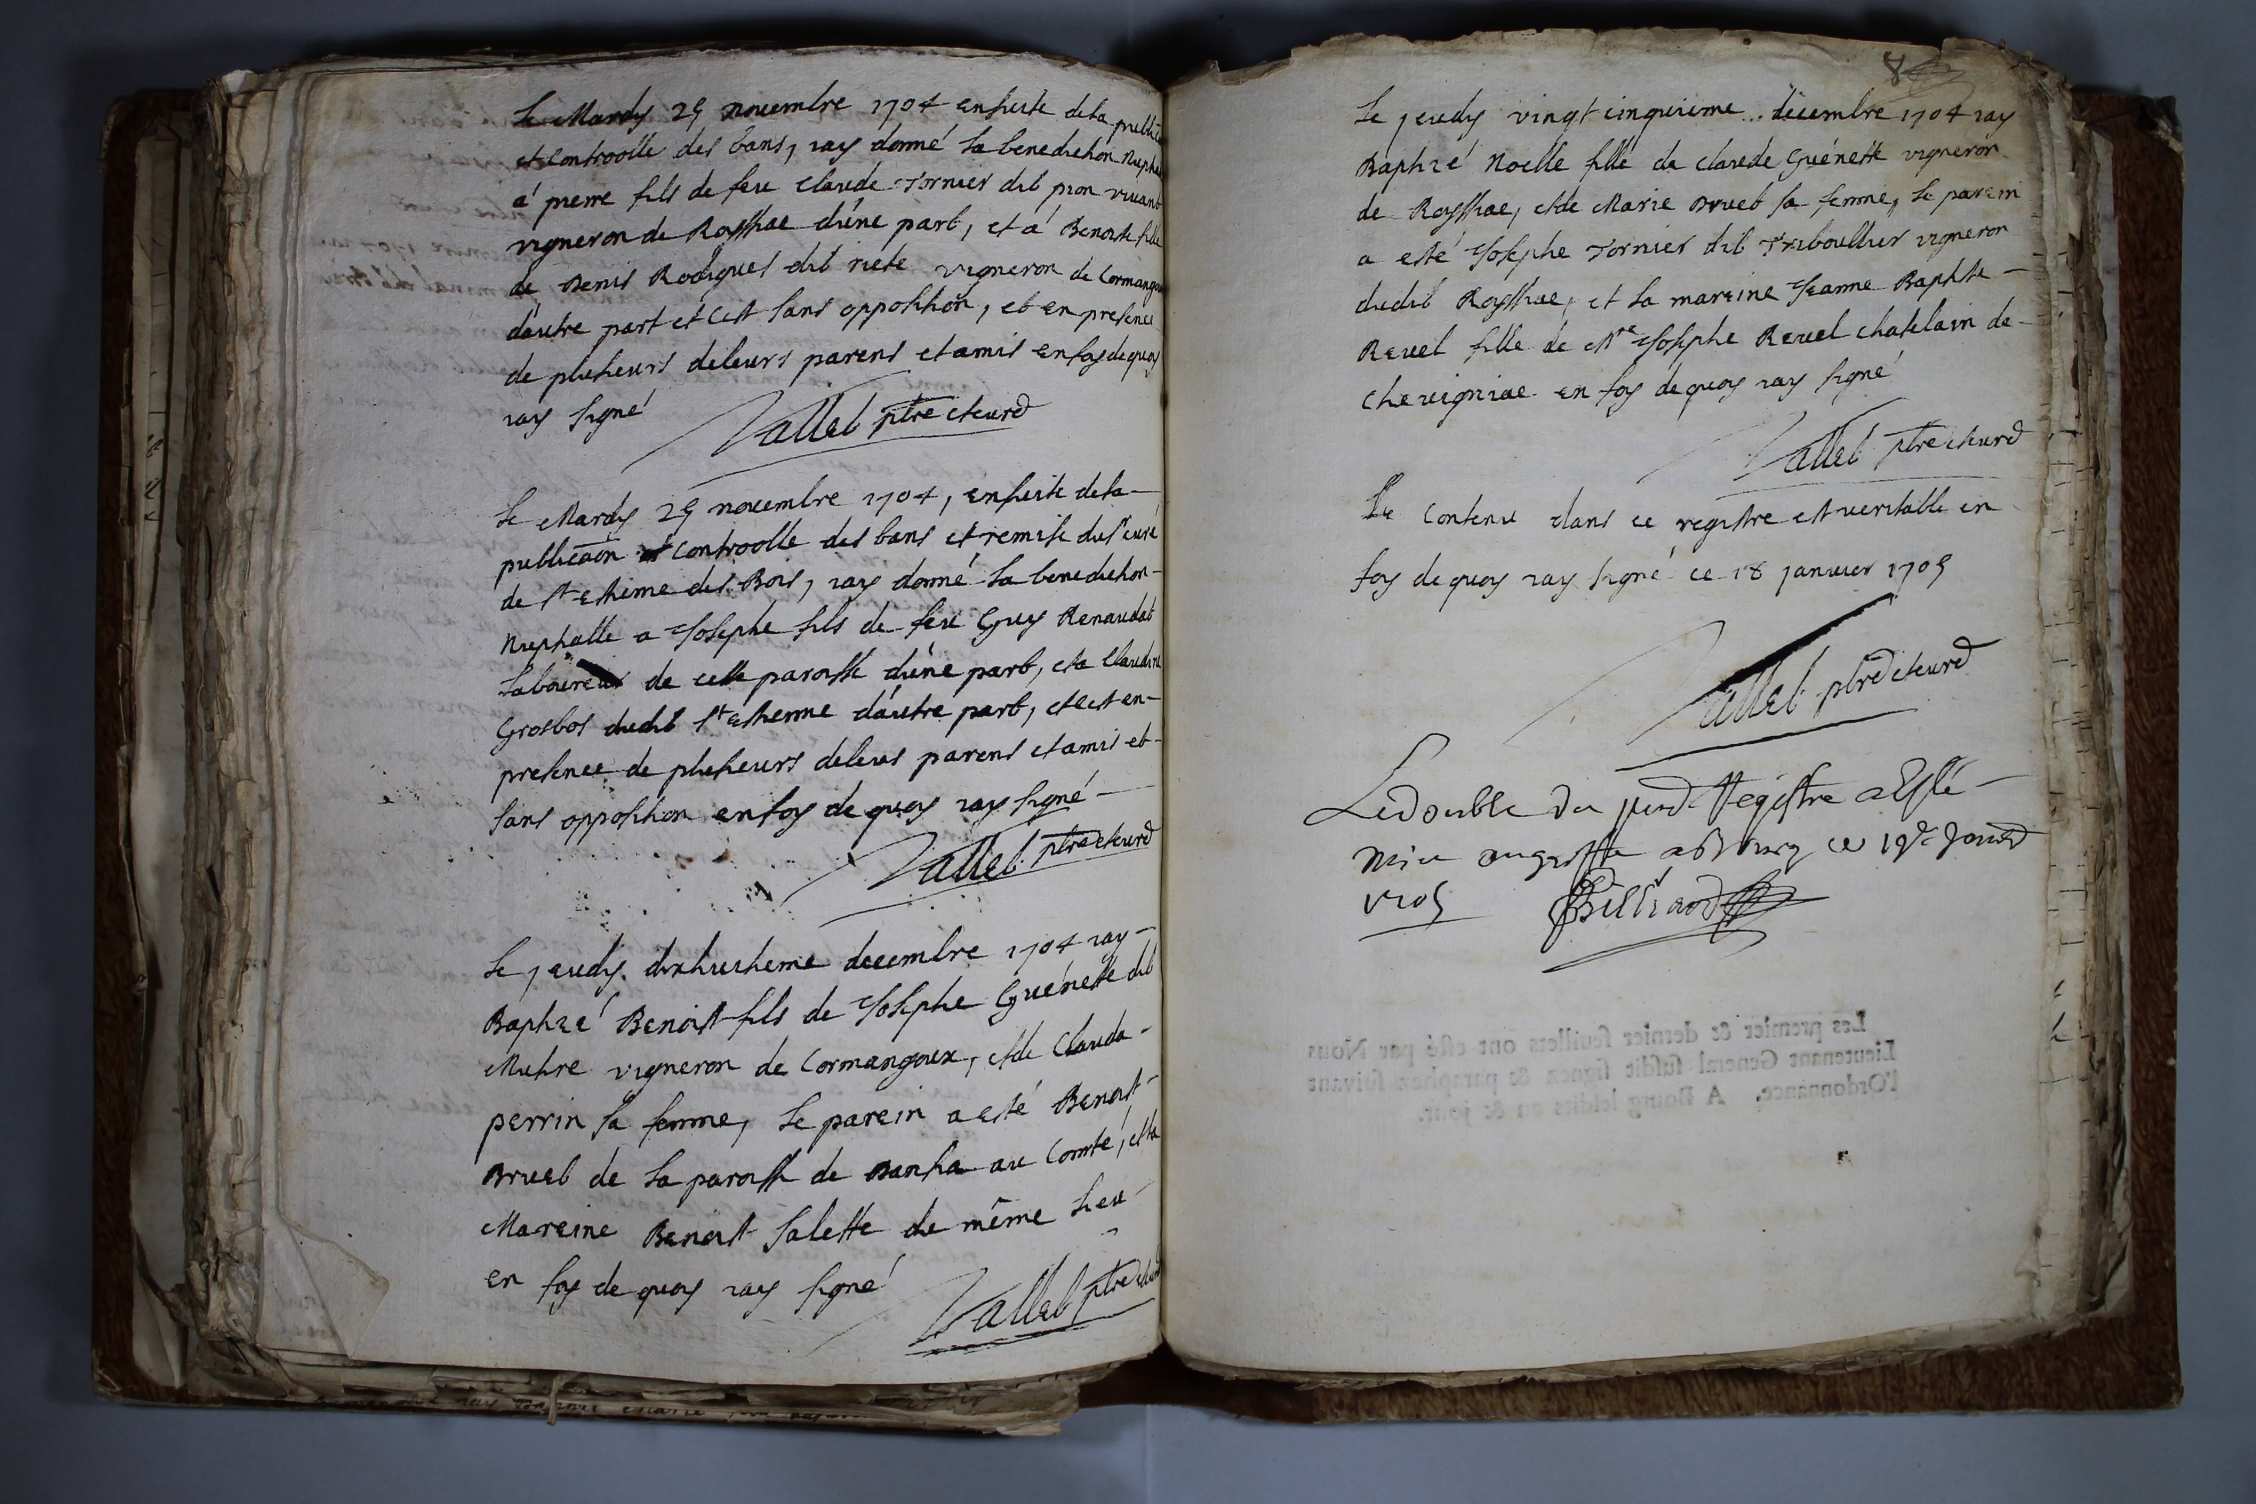 Le Mardy 25 novembre 1704 ensuite dela public
et controolle des bans, iay donné la benediction nuptia
a' pierre fils de feu Claude Tornier dit pion vivant
vigneron de Roissiae d'une part, et a' Benoiste fille
de Denis Rodigues dit riete vigneron de Cormangou
d'autre part et c'est sans opposition, et en presence
de plusieurs deleurs parens et amis en foy de quoy
iay signé Vallet ptre et curé
Le Mardy 25 novembre 1704, ensuite dela
publicaon et controolle des bans et remise du sr curé
de st estienne des Bois, iay donné la benediction
nuptialle a Josephe fils de feu Guy Renaudat
laboureur de cette paroisse d'une part, et a Claudine
Grosbos dudit st estienne d'autre part, et c'est en
presence de plusieurs deleurs parens et amis et
sans opposition en foy de quoy iay signé
Vallet ptre et curé
Le jeudy dixhuitieme decembre 1704 iay
Baptizé Benoist fils de Josephe Guénette dit
vigneron de Cormangoux, et de Clauda
perrin sa femme, le parein a esté Benoist
Bruet de la paroisse de au Comté, et la
Mareine Benoist Salette du même lieu
en foy de quoy iay signé Vallet ptre et curé
8
Le jeudy vingt cinquieme decembre 1704 iay
Baptizé Noelle fille de Claude Guénette vigneron
de Roissiae, et de Marie Bruet sa femme, le parein
a esté Josephe Tornier dit Triboullier vigneron
dudit Roissiae, et la mareine Jeanne Baptiste
Revel fille de Mre Josephe Revel chatelain de
Chevigniae en foy de quoy iay signé
Vallet ptre et curé
Le Contenu dans ce registre est veritable en
foy de quoy iay signé ce 18 janvier 1705
Vallet ptre et curé
Le double du pnt Registre a Esté
mis au greffe a Bourg ce 19e Janv
1705 Billiard
Les premier & dernier feuillets ont esté par Nous
Lieutenant General susdit signez & paraphez suivant
l'Ordonnance. A Bourg lesdits an & jour.